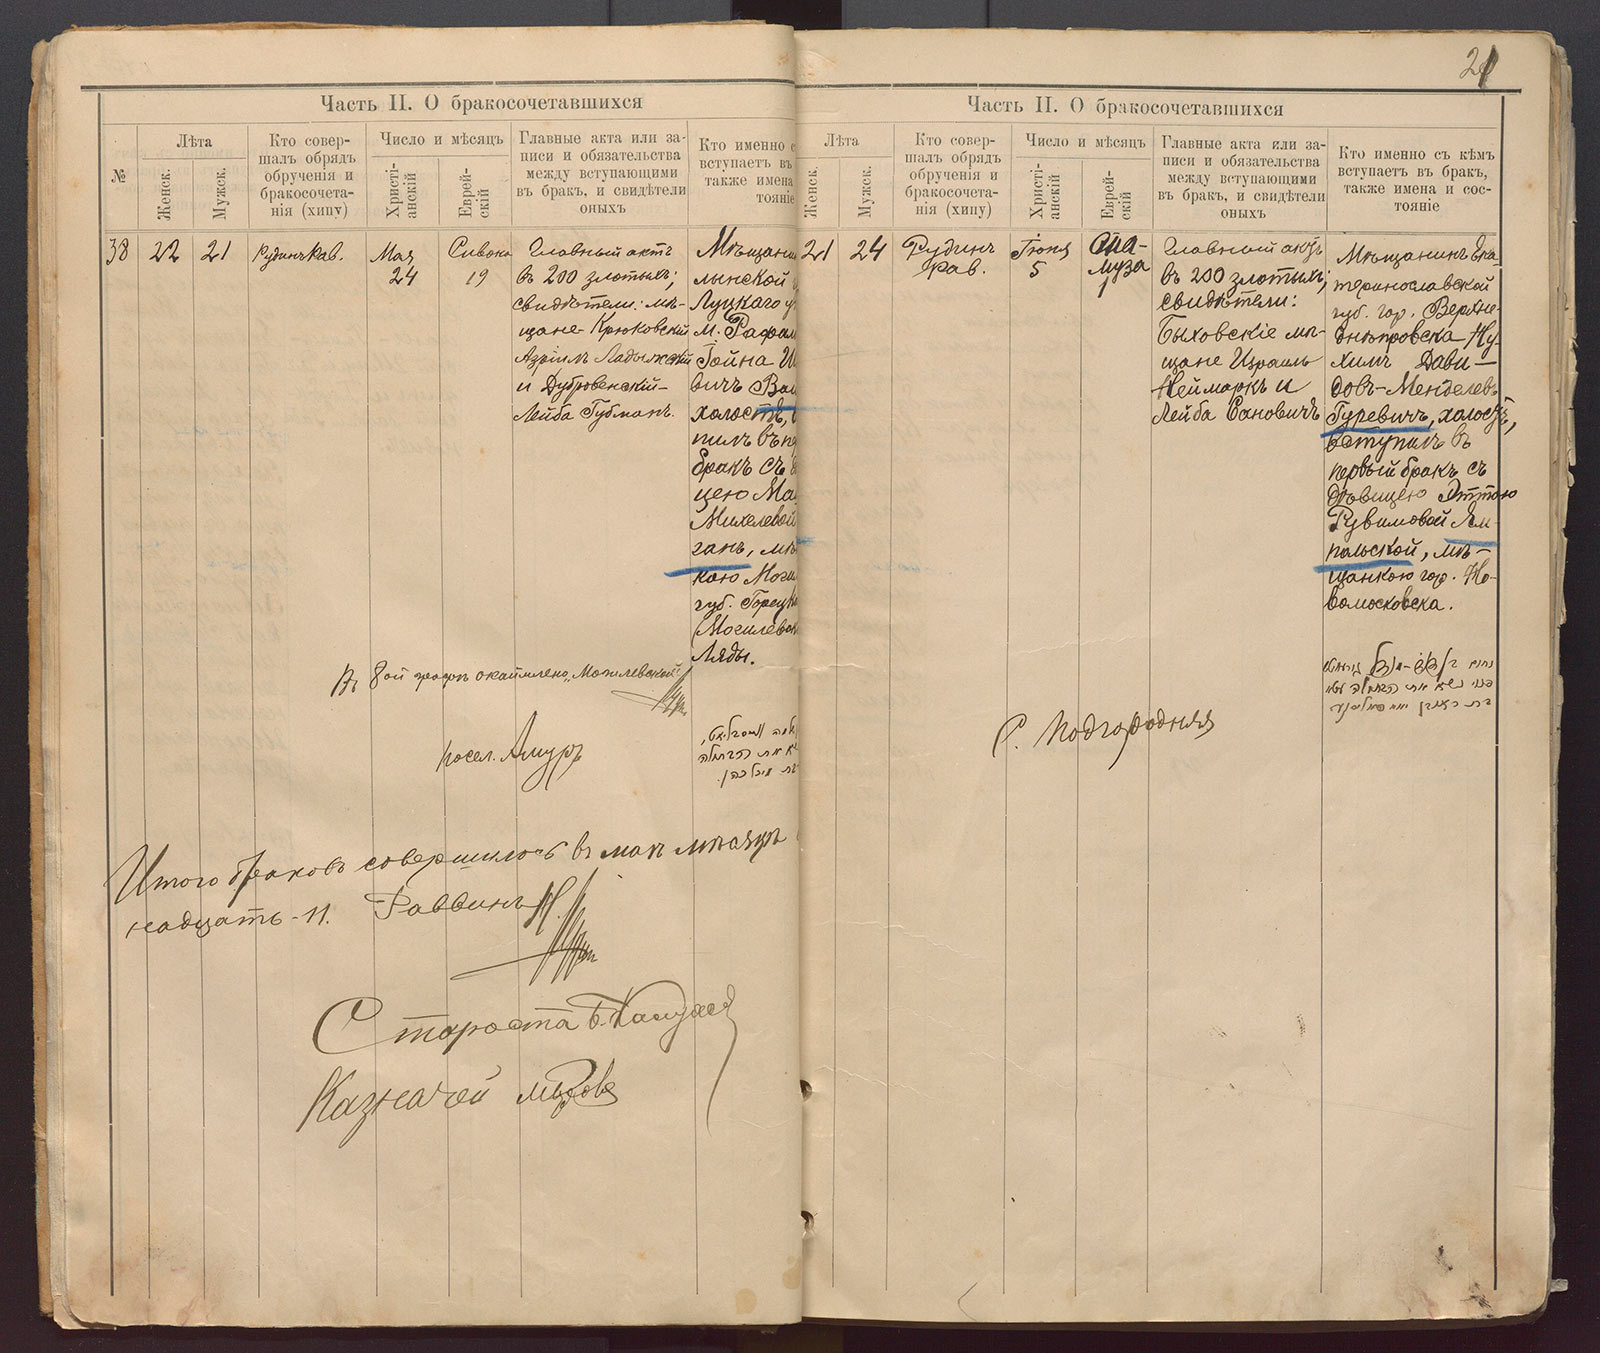 Часть II. О бракосочетавшихся
№
Лѣта
Женск.
Мужск.
Кто совер-
шалъ обрядъ
обрученія и
бракосочета-
нія (хипу)
Число и мѣсяцъ
Христі-
анскій
Еврей-
скій
Главные акта или за-
писи и обязательства
между вступающими
въ бракъ, и свидѣтели
оныхъ
Кто именно с
вступаетъ въ
также имена
тояніе
38
22
21
Рудинъ Рав.
Мая
24
Сивона
19
Главный актъ
въ 200 злотыхъ;
свидѣтели: мѣ-
щане Крюковскій
Азріилъ Ладыжскій
и Дубровенскій
Лейба Губманъ.
Мѣщанин
лынской
Луцкаго у
м. Рафал
Іойна
вичъ
холостъ,
пилъ въ пе
бракъ съ
цею Ма
Михелевой
ганъ, мѣ
кою Моги
губ. Горецк
(Могилевск
Ляды.
Въ 8ой графѣ окаймлено „Могилевской"
посел. Амуръ
Итого браковъ совершилось въ маѣ мѣсяцѣ
надцать - 11. Раввинъ
Староста
Казначей
21
Часть II. О бракосочетавшихся
Лѣта
Женск.
Мужск.
Кто совер-
шалъ обрядъ
обрученія и
бракосочета-
нія (хипу)
Число и мѣсяцъ
Христі-
анскій
Еврей-
скій
Главные акта или за-
писи и обязательства
между вступающими
въ бракъ, и свидѣтели
оныхъ
Кто именно съ кѣмъ
вступаетъ въ бракъ,
также имена и сос-
тояніе
21
24
Рудинъ
Рав.
Іюня
5
Та-
муза
1
Главный актъ
въ 200 злотыхъ;
свидѣтели:
Быховскіе мѣ-
щане Израиль
Неймаркъ и
Лейба Сановичъ
Мѣщанинъ Ека
теринославской
губ. гор. Верхне-
днѣпровска Ну-
химъ Дави-
довъ-Менделевъ
Гуревичъ, холостъ,
вступилъ въ
первый бракъ съ
дѣвицею Эттою
Рувимовой Ям-
польской, мѣ-
щанкою гор. Но-
вомосковска.
С. Подгородняя